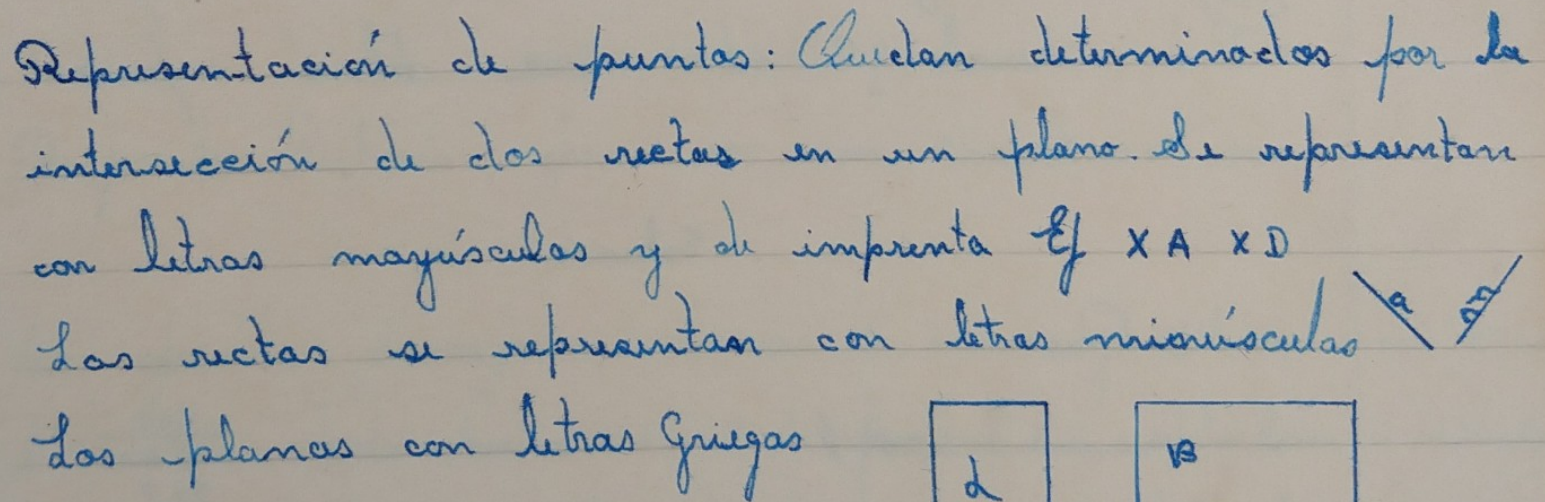 Representación de puntos: Quedan determinados por la
intersección de dos rectas en un plano. Se representan
con letras mayúsculas y de imprenta Ej x A x D
Las rectas se representan con letras minúsculas a m
Los planos con letras Griegas α β